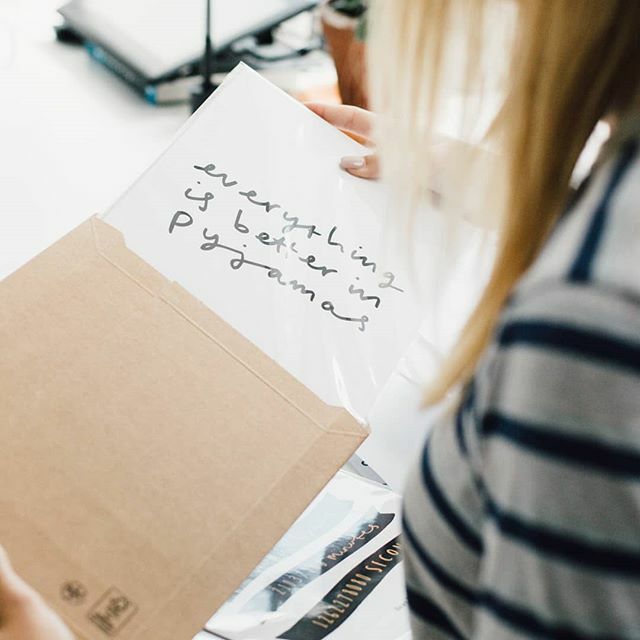 everything
is better in
pyjamas